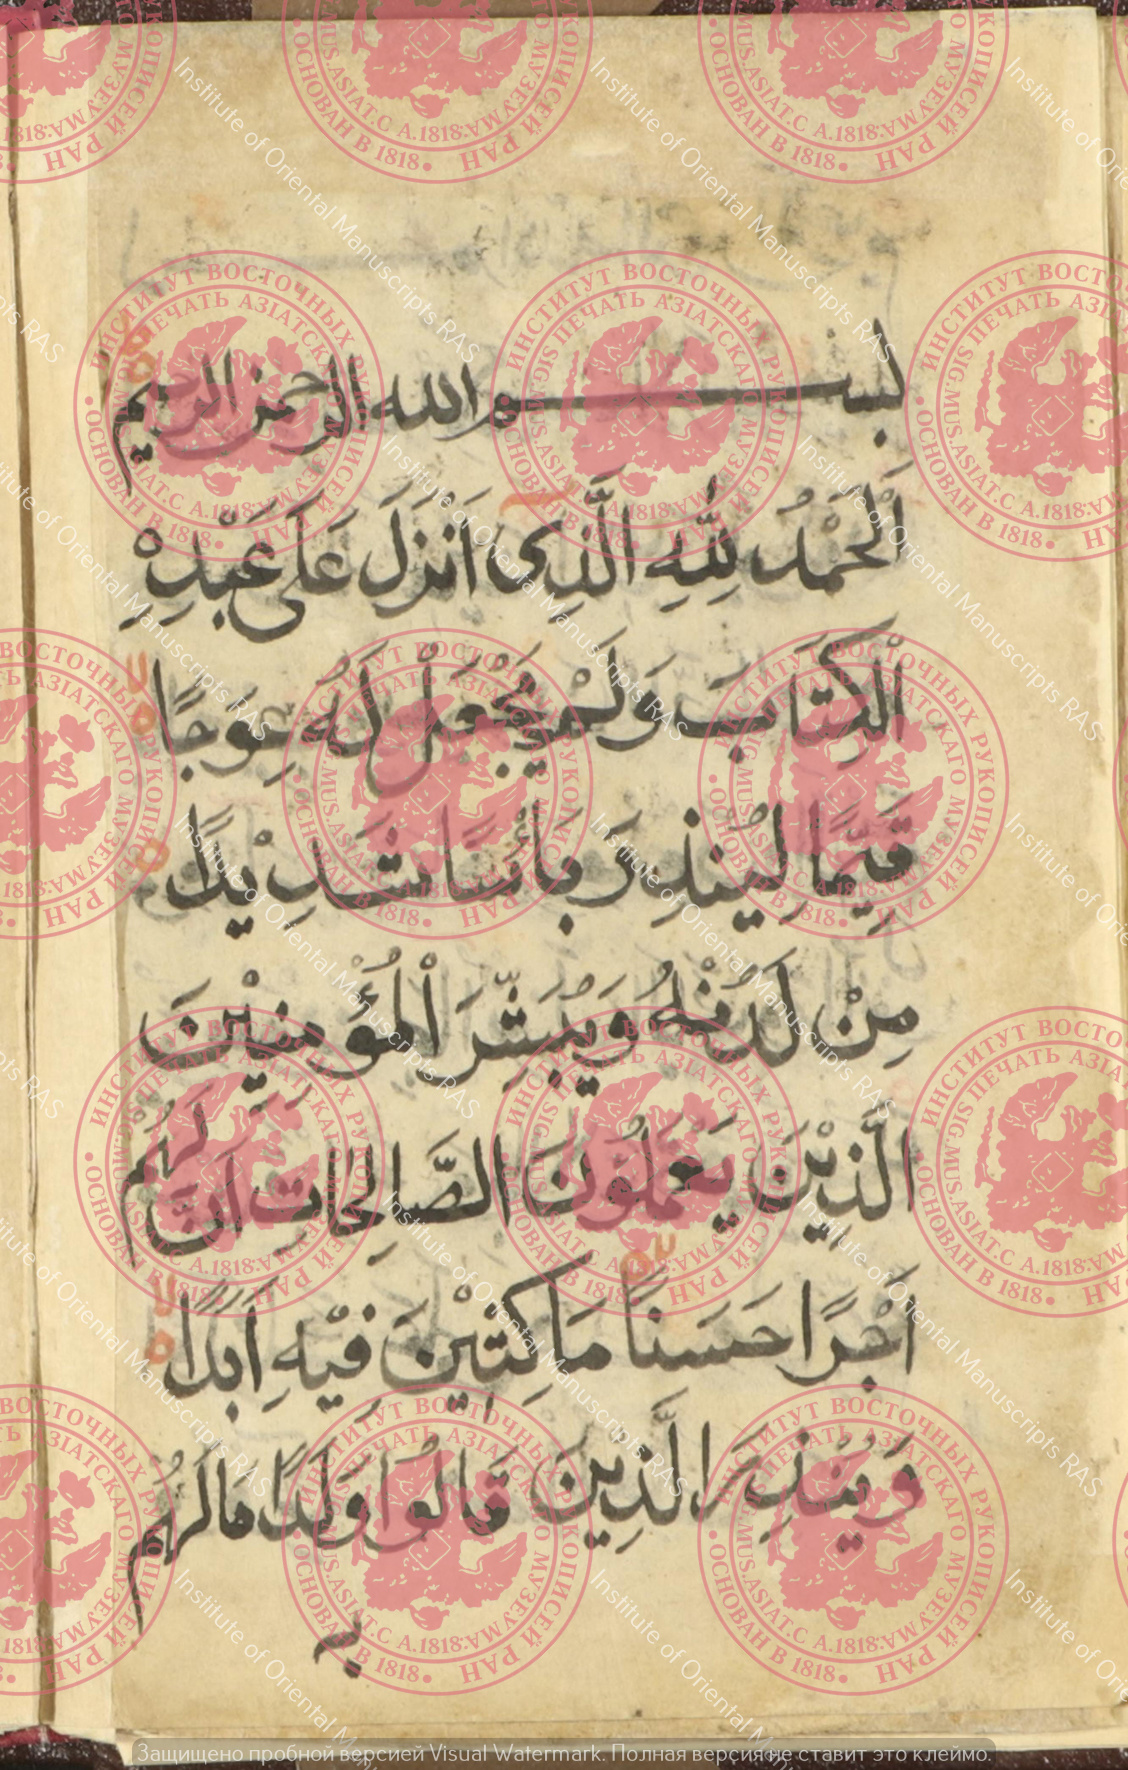 بسم الله الرحمن الرحيم
اَلْحَمْدُ لِلّٰهِ الَّذِى اَنْزَلَ عَلَى عَبْدِهِ
الْكِتَابَ وَلَمْ يَجْعَلْ لَهُ عِوَجًا
قَيِّمًا لِيُنْذِرَ بَأْسًا شَدِيْدًا
مِنْ لَدُنْهُ وَيُبَشِّرَ الْمُؤْمِنِيْنَ
الَّذِيْنَ يَعْمَلُوْنَ الصَّالِحَاتِ اَنَّ لَهُمْ
اَجْرًا حَسَنًا مَاكِثِيْنَ فِيْهِ اَبَدًا
وَيُنْذِرَ الَّذِيْنَ قَالُوا وَلَدًا مَالَهُمْ
به
ИНСТИТУТ ВОСТОЧНЫХ РУКОПИСЕЙ РАН
ОСНОВАН В 1818
ПЕЧАТЬ АЗІАТСКАГО МУЗЕУМА
SIG. MUS. ASIAT. C A. 1818
Institute of Oriental Manuscripts RAS
Защищено пробной версией Visual Watermark. Полная версия не ставит это клеймо.